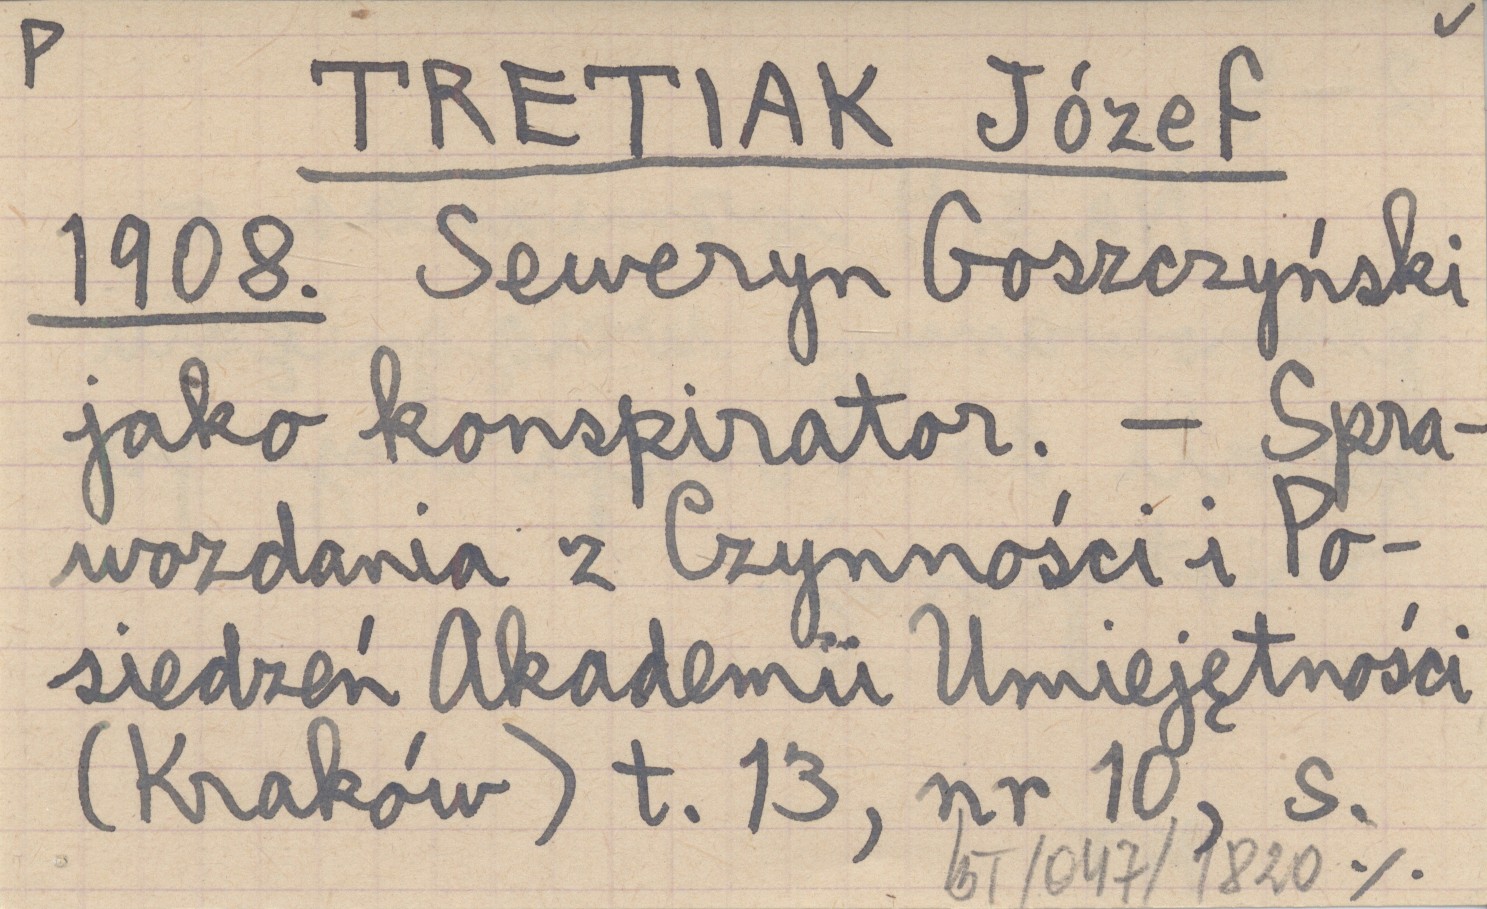 P
TRETIAK Józef
1908. Seweryn Goszczyński
jako konspirator. – Spra-
wozdania z Czynności i Po-
siedzeń Akademii Umiejętności
(Kraków) t. 13, nr 10, s.
/047/1820 ./.